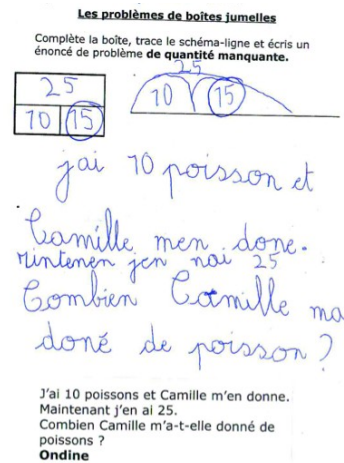 Les problèmes de boîtes jumelles
Complète la boîte, trace le schéma-ligne et écris un
énoncé de problème de quantité manquante.
25
10 15
25
10 15
jai 10 poisson et
Camille men done.
mintenen jen nai 25
Combien Camille ma
doné de poisson ?
J'ai 10 poissons et Camille m'en donne.
Maintenant j'en ai 25.
Combien Camille m'a-t-elle donné de
poissons ?
Ondine